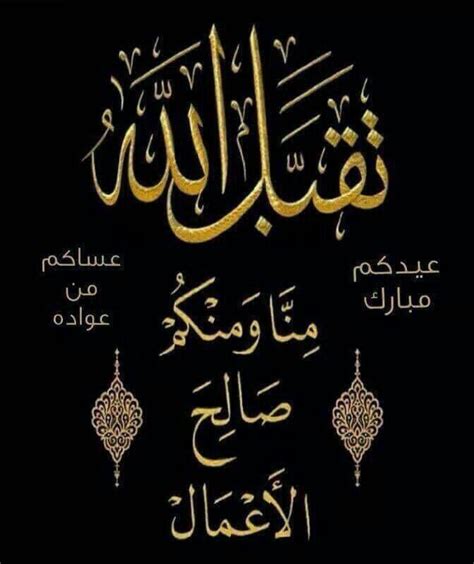 تقبل الله
عيدكم
مبارك
عساكم
من
عواده
مِنَّا وَمِنْكُمْ
صَالِحَ
الأَعْمَالِ